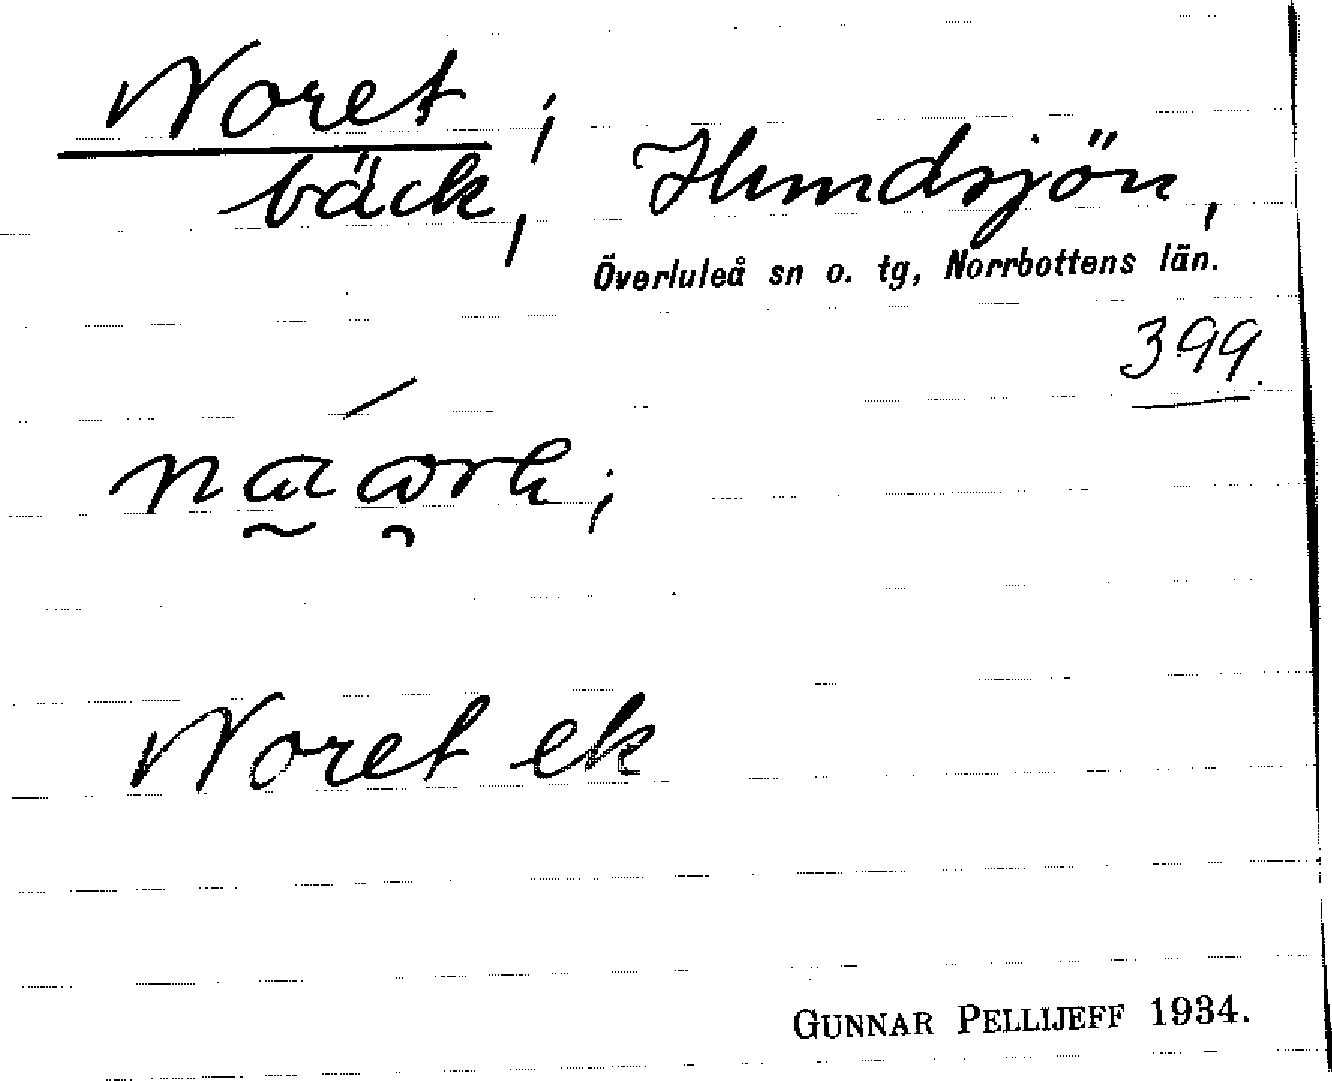 Noret ;
bäck, Hundsjön,
Överluleå sn o. tg, Norrbottens län.
399.
Noret ek
GUNNAR PELLIJEFF 1934.